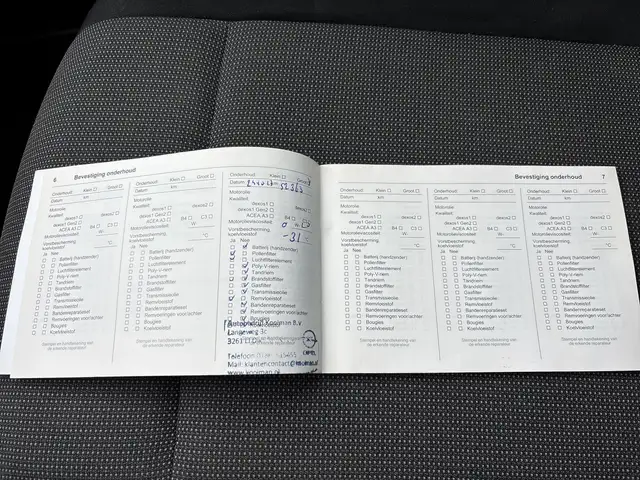 6 Bevestiging onderhoud
Onderhoud: Klein Groot
Datum km
Motorolie
Kwaliteit:
dexos1 dexos2
dexos1 Gen2
ACEA A3 B4 C3
Motorolieviscositeit W-
Vorstbescherming,
koelvloeistof °C
Ja Nee
Batterij (handzender)
Pollenfilter
Luchtfilterelement
Poly-V-riem
Tandriem
Brandstoffilter
Gasfilter
Transmissieolie
Remvloeistof
Bandenreparatieset
Remvoeringen voor/achter
Bougies
Koelvloeistof
Stempel en handtekening van
de erkende reparateur
Onderhoud: Klein Groot
Datum km
Motorolie
Kwaliteit:
dexos1 dexos2
dexos1 Gen2
ACEA A3 B4 C3
Motorolieviscositeit W-
Vorstbescherming,
koelvloeistof °C
Ja Nee
Batterij (handzender)
Pollenfilter
Luchtfilterelement
Poly-V-riem
Tandriem
Brandstoffilter
Gasfilter
Transmissieolie
Remvloeistof
Bandenreparatieset
Remvoeringen voor/achter
Bougies
Koelvloeistof
Stempel en handtekening van
de erkende reparateur
Onderhoud: Klein Groot
Datum
Motorolie
Kwaliteit:
dexos1 dexos2
dexos1 Gen2
ACEA A3 B4 C3
Motorolieviscositeit
Vorstbescherming,
koelvloeistof -31
Ja Nee
Batterij (handzender)
Pollenfilter
Luchtfilterelement
Poly-V-riem
Tandriem
Brandstoffilter
Gasfilter
Transmissieolie
Remvloeistof
Bandenreparatieset
Remvoeringen voor/achter
Bougies
Autobedrijf Kooiman B.V
Langeweg 3c
Mail: klantencontact@kooiman.nl
www.kooiman.nl
Bevestiging onderhoud 7
Onderhoud: Klein Groot
Datum km
Motorolie
Kwaliteit:
dexos1 dexos2
dexos1 Gen2
ACEA A3 B4 C3
Motorolieviscositeit W-
Vorstbescherming,
koelvloeistof °C
Ja Nee
Batterij (handzender)
Pollenfilter
Luchtfilterelement
Poly-V-riem
Tandriem
Brandstoffilter
Gasfilter
Transmissieolie
Remvloeistof
Bandenreparatieset
Remvoeringen voor/achter
Bougies
Koelvloeistof
Stempel en handtekening van
de erkende reparateur
Onderhoud: Klein Groot
Datum km
Motorolie
Kwaliteit:
dexos1 dexos2
dexos1 Gen2
ACEA A3 B4 C3
Motorolieviscositeit W-
Vorstbescherming,
koelvloeistof °C
Ja Nee
Batterij (handzender)
Pollenfilter
Luchtfilterelement
Poly-V-riem
Tandriem
Brandstoffilter
Gasfilter
Transmissieolie
Remvloeistof
Bandenreparatieset
Remvoeringen voor/achter
Bougies
Koelvloeistof
Stempel en handtekening van
de erkende reparateur
Onderhoud: Klein Groot
Datum km
Motorolie
Kwaliteit:
dexos1 dexos2
dexos1 Gen2
ACEA A3 B4 C3
Motorolieviscositeit W-
Vorstbescherming,
koelvloeistof °C
Ja Nee
Batterij (handzender)
Pollenfilter
Luchtfilterelement
Poly-V-riem
Tandriem
Brandstoffilter
Gasfilter
Transmissieolie
Remvloeistof
Bandenreparatieset
Remvoeringen voor/achter
Bougies
Koelvloeistof
Stempel en handtekening van
de erkende reparateur